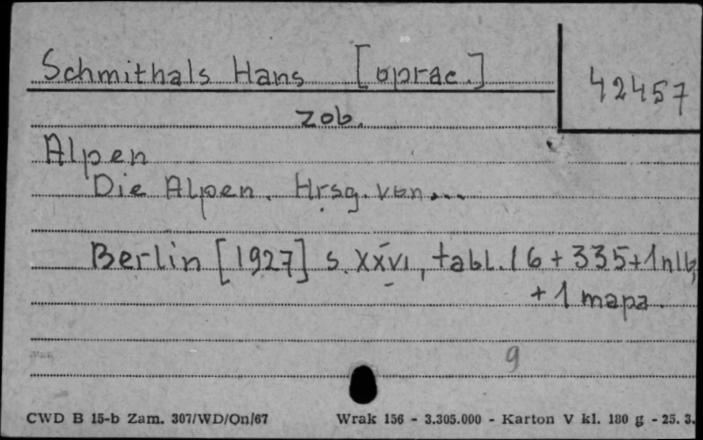 Schmithals Hans [oprac.]
42457
zob.
Alpen
Die Alpen. Hrsg. von...
Berlin [1927] s. XXVI, tabl. 16 + 335 + 1 nlb,
+ 1 mapa.
9
CWD B 15-b Zam. 307/WD/On/67 Wrak 156 - 3.305.000 - Karton V kl. 180 g - 25. 3.